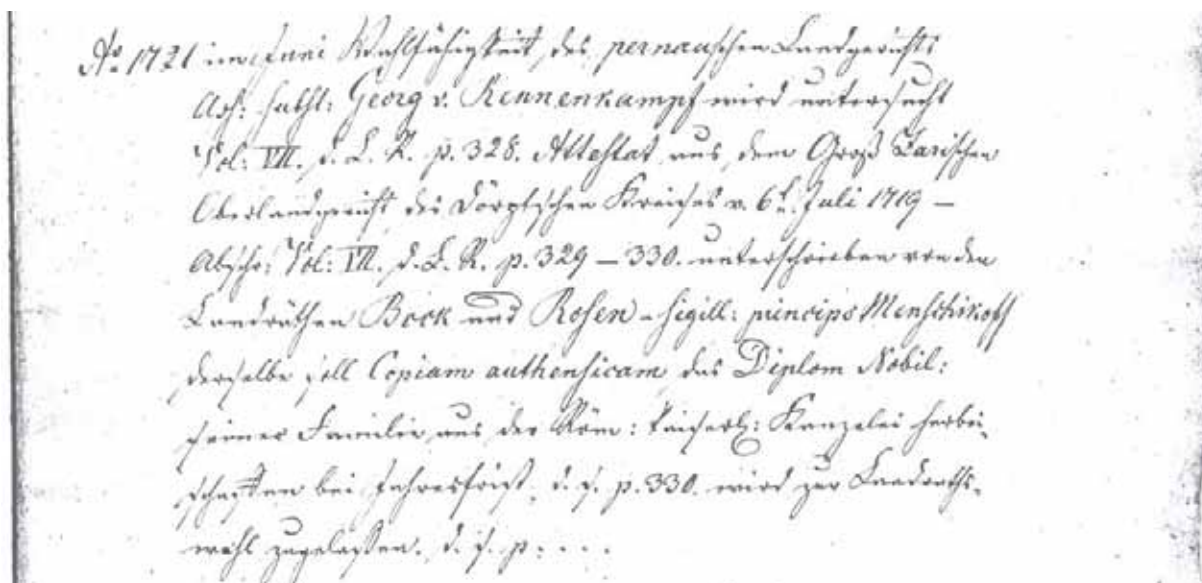 Aº 1721 im Juni Wahlfähigkeit des pernauschen Landgerichts
Ass: subst: Georg v. Rennenkampf wird untersucht
Vol: VII. d. L. R. p. 328. Attestat aus dem Groß Zarischen
Oberlandgericht des Dörptschen Kreises v. 6t. Juli 1719 —
Abschr: Vol: VII. d. L. R. p. 329 — 330. unterschrieben von den
Landräthen Bock und Rosen - sigill: principis Menschikoff
derselbe soll Copiam authensicam das Diplom Nobil:
seiner Familie aus der Röm: Kaiserl: Kanzelei herbei-
schaffen bei Jahresfrist. d. s. p. 330. wird zur Landraths-
wahl zugelassen. d. s. p: . . .